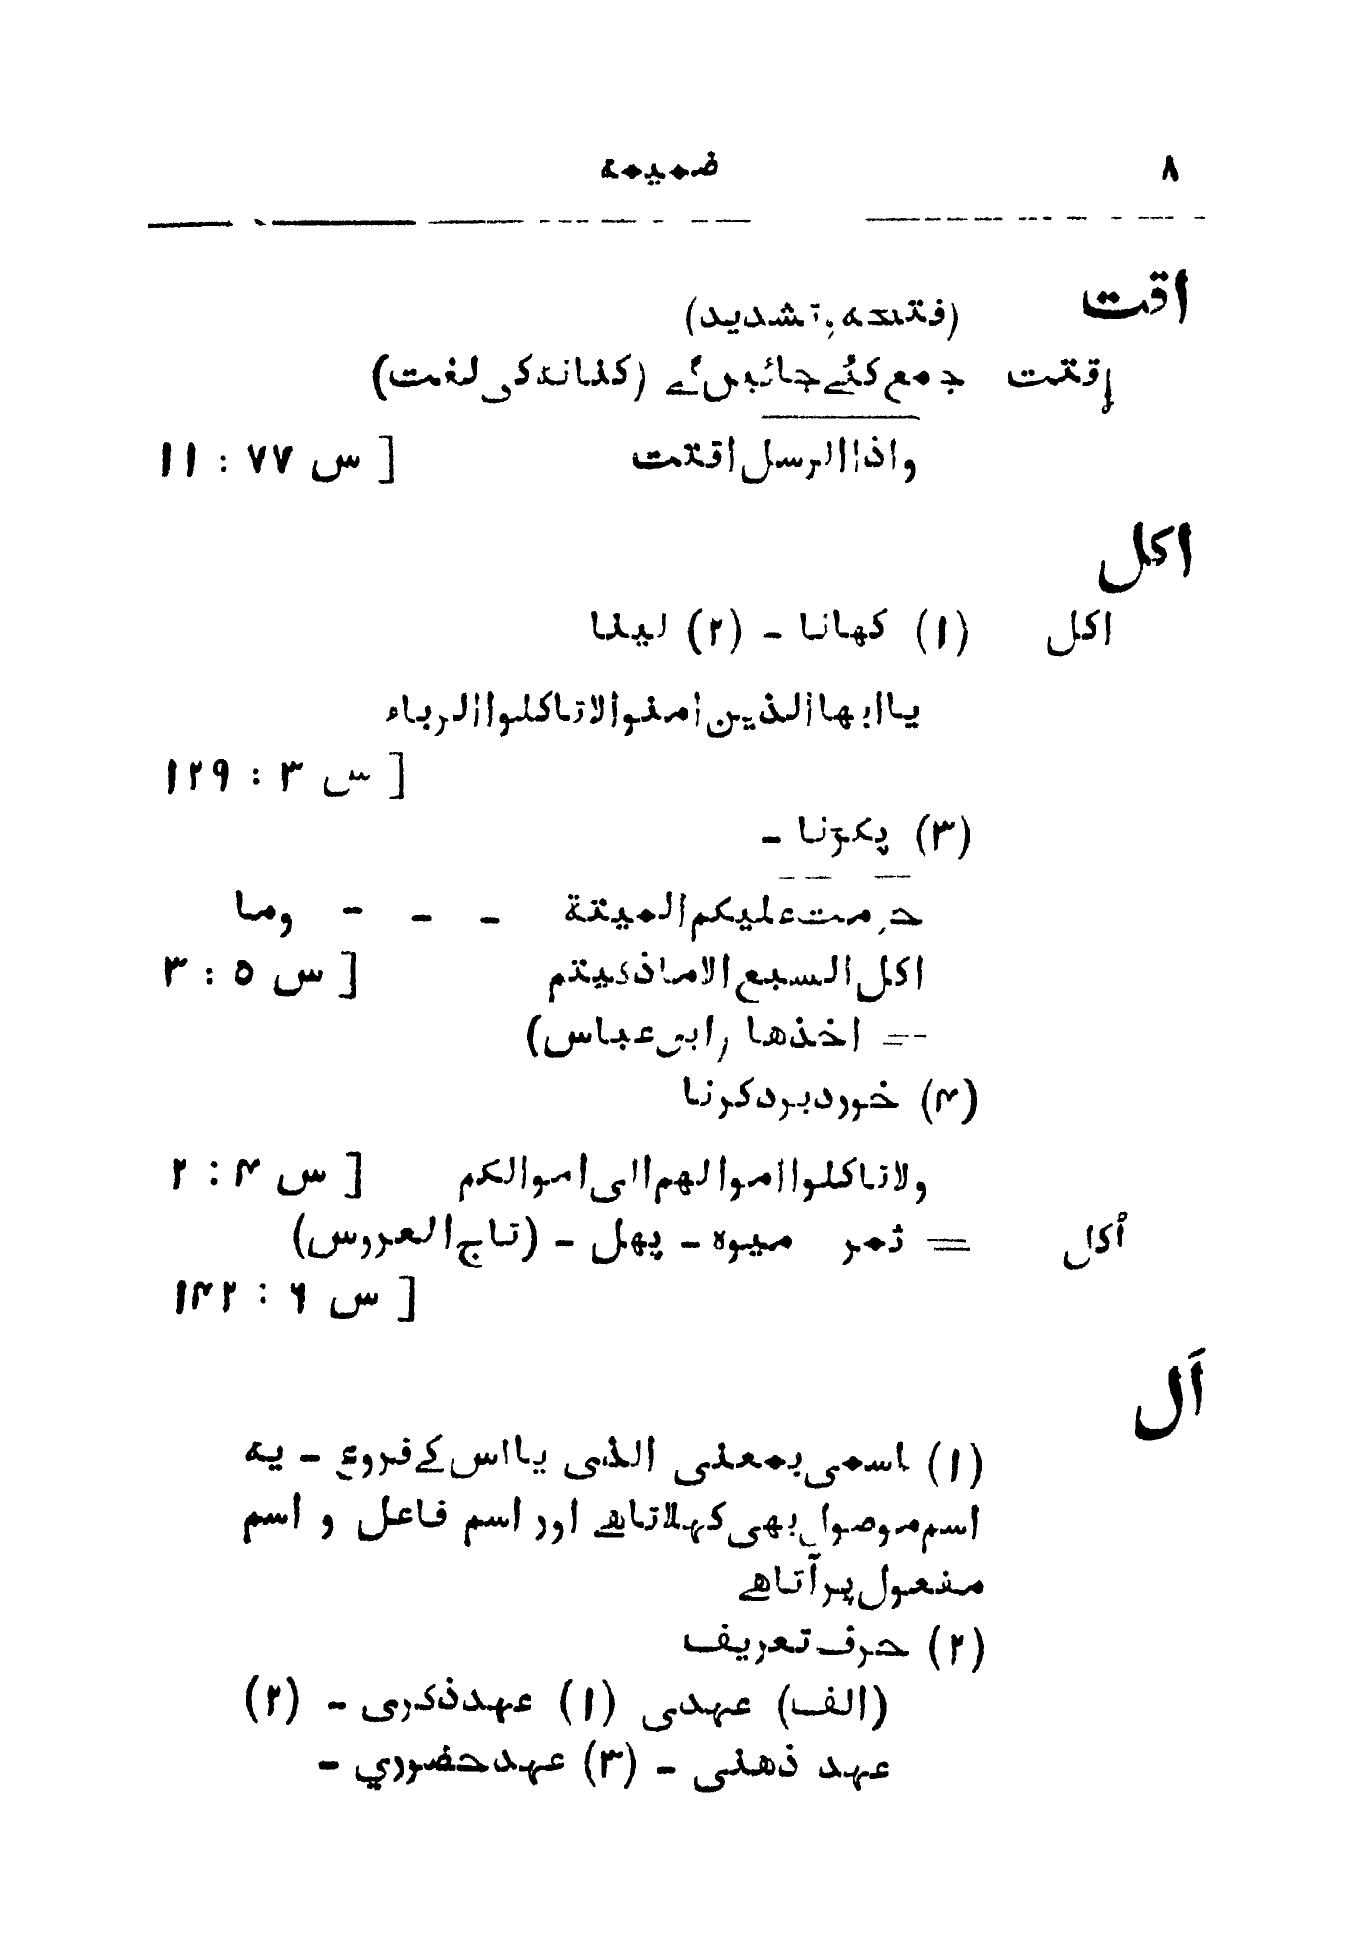 ۸ ضمیمه
اقت
(فتحه بتشدید)
اقتت جمع کئے جائیں گے (کنانہ کی لغت)
واذا الرسل اقتت [ س ۷۷ : ۱۱
اکل
اکل (۱) کھانا - (۲) لینا
یا ایها الذین امنوا لا تاکلوا الرباء
[ س ۳ : ۱۲۹
(۳) پکڑنا -
حرمت علیکم المیتة - - - وما
اکل السبع الا ما ذکیتم [ س ۵ : ۳
= اخذها (ابن عباس)
(۴) خورد برد کرنا
ولا تاکلوا اموالهم الی اموالکم [ س ۴ : ۲
أکل = ثمر میوہ - پھل - (تاج العروس)
[ س ۶ : ۱۴۲
اَل
(۱) اسمی بمعنی الذی یا اس کے فروع - یه
اسم موصول بھی کہلاتا ہے اور اسم فاعل و اسم
مفعول پر آتا ہے
(۲) حرف تعریف
(الف) عہدی (۱) عہد ذکری - (۲)
عہد ذهنی - (۳) عہد حضوري -